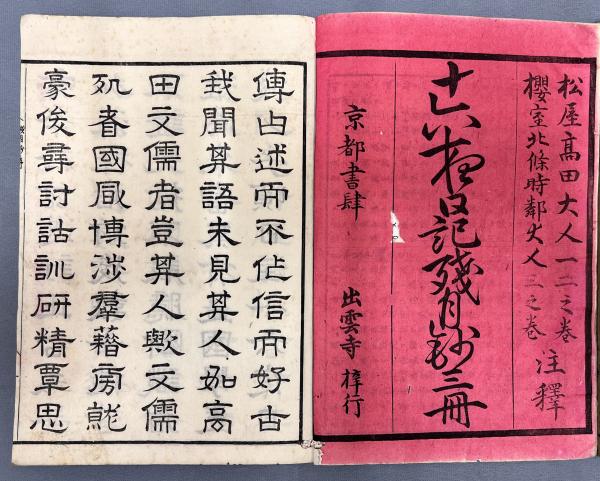 松屋高田大人一二之巻
櫻室北條時鄰大人三之巻
注釋
十六夜日記殘月鈔三冊
京都書肆 出雲寺 梓行
傳曰述而不作信而好古
我聞其語未見其人如高
田文儒者豈其人歟文儒
夙耆國風博涉羣藉旁能
豪俊尋討詁訓研精覃思